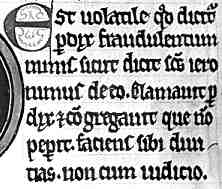 Est uolatile qđ dicit͛
ꝑdix fraudulentum
nimis sicut dicit sc̄s iero
nimus de eo. Clamauit ꝑ
dix & ↄ̄gregauit que nō
peꝑit. faciens sibi diui
tias. non cum iudicio.